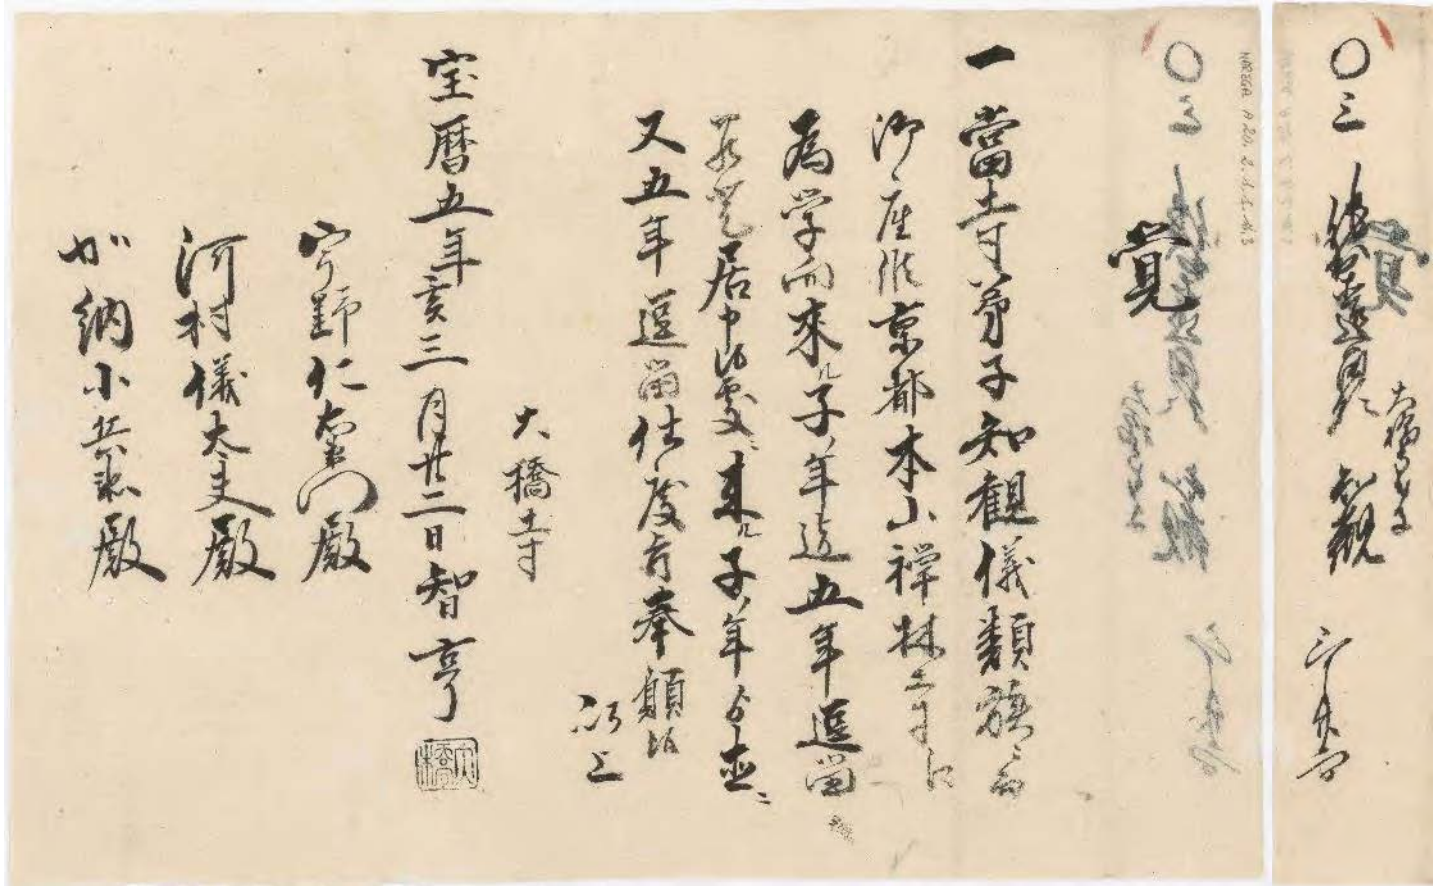 〇三
大橋寺
知観
覚
MAREGA A 20. 2. 1. 1. 4. 3
一當寺弟子知観儀類族ニ而
御座候京都本山禅林寺江
為学問来ル子ノ年迄五年逗留
居申候處ニ来ル子ノ年ゟ亦ニ
又五年逗留仕度旨奉願候
以上
大橋寺
宝暦五年亥三月廿二日智亨
宇野仁右衛門殿
河村儀太夫殿
加納小兵衛殿